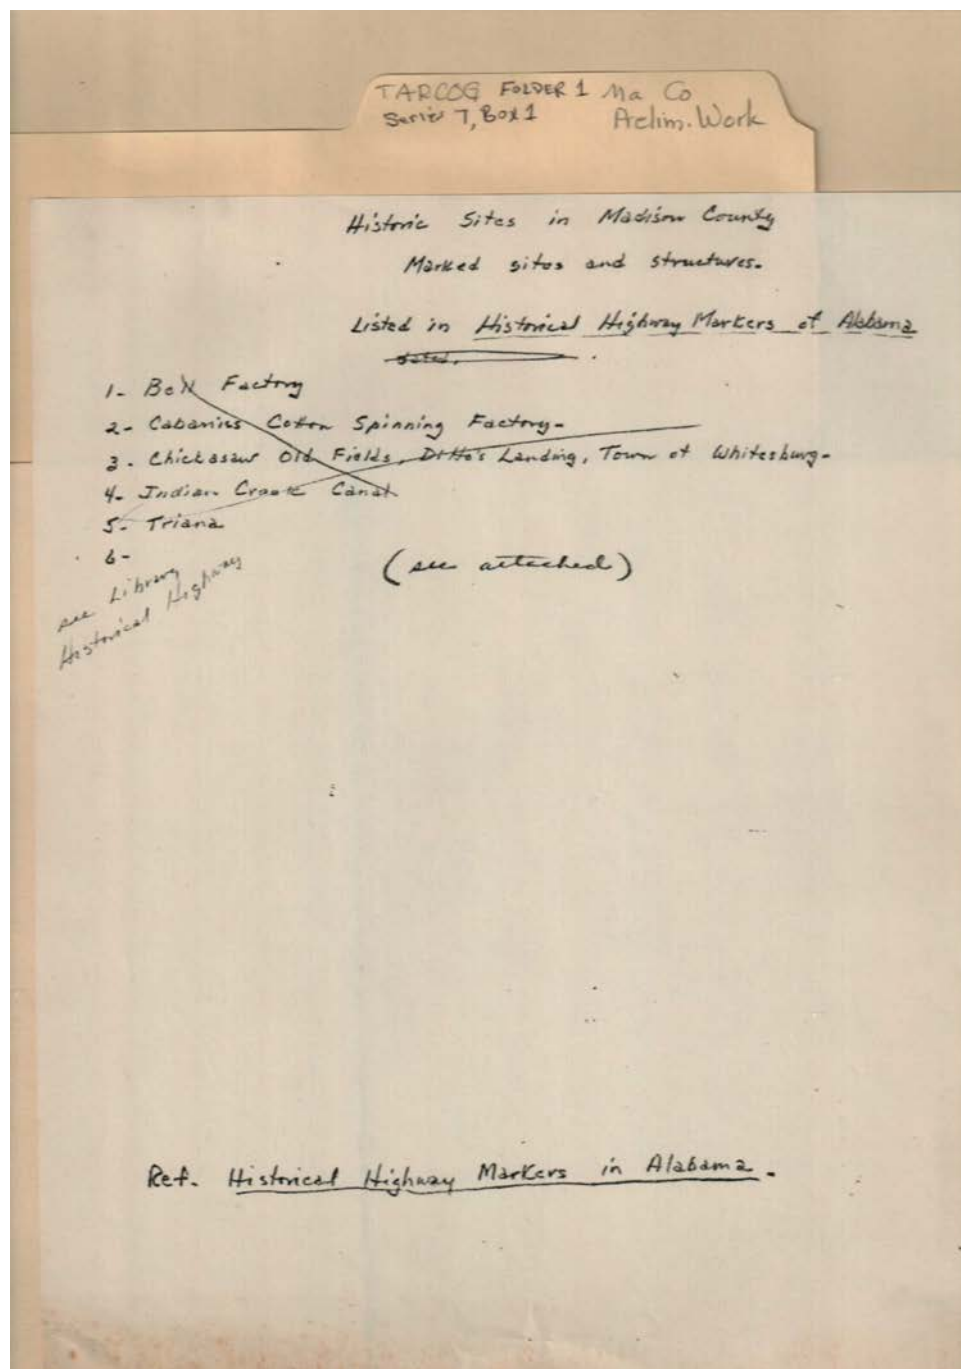 TARCOG FOLDER 1 Ma Co
Series 7, Box 1 Prelim. Work
Historic Sites in Madison County
Marked sites and structures.
Listed in Historical Highway Markers of Alabama
1- Bell Factory
2- Cabaniss Cotton Spinning Factory-
3- Chickasaw Old Fields, Ditto's Landing, Town of Whitesburg-
4- Indian Creek Canal
5- Triana
6-
(see attached)
see Library
Historical Highway
Ref. Historical Highway Markers in Alabama.